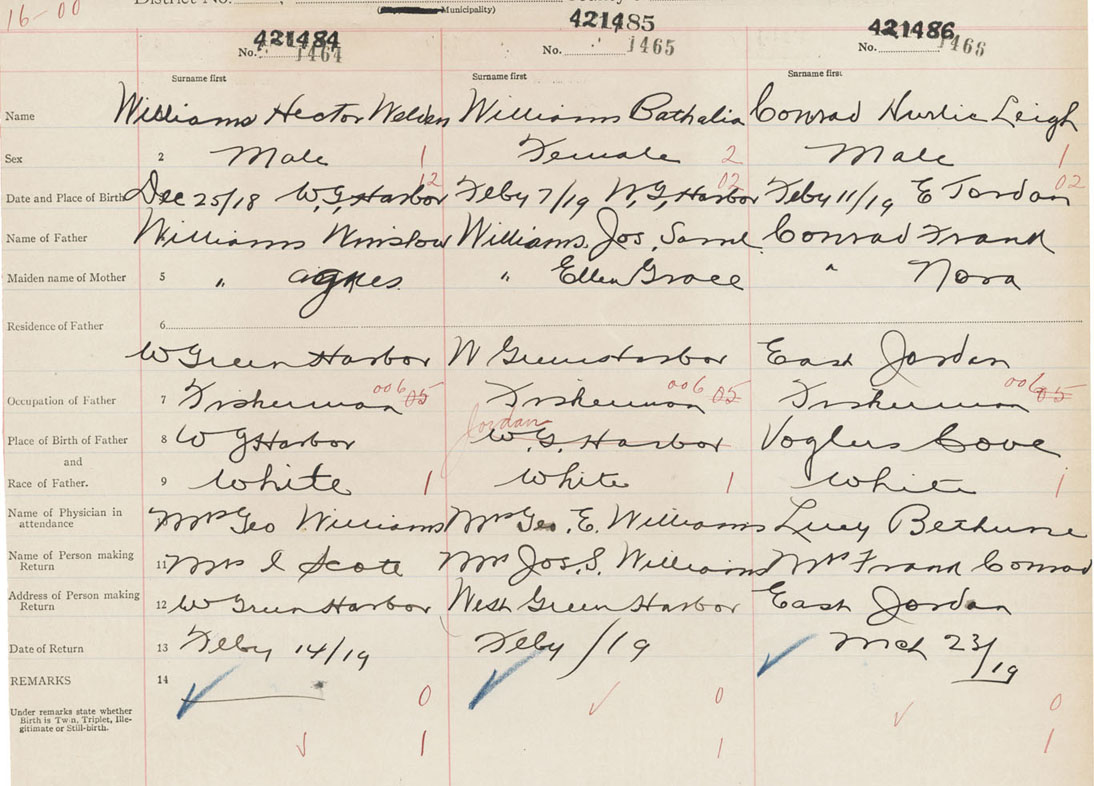 16-00
District No.
Municipality)
421484 421485 421486
No. 1464 No. 1465 No. 1466
Surname first Surname first Surname first
Name Williams Hector Weldon Williams Bathalia Conrad Leigh
Sex 2 Male 1 Female 2 Male 1
12 02 02
Date and Place of Birth Dec 25/18 W. G. Harbor Feby 7/19 W. G. Harbor Feby 11/19 E Jordan
Name of Father Williams Winslow Williams Jos. Saml Conrad Frank
Maiden name of Mother 5 " agnes " Ellen Grace " Nora
Residence of Father 6
W Green Harbor W Green Harbor East Jordan
006 006 006
Occupation of Father 7 Fisherman 05 Fisherman 05 Fisherman 05
Jordan
Place of Birth of Father 8 W G Harbor W. G. Harbor Voglers Cove
and
Race of Father. 9 White 1 White 1 White 1
Name of Physician in Mrs Geo Williams Mrs Geo. E. Williams Lucy Bethune
attendance
Name of Person making 11 Mrs Scott Mrs Jos. S. Williams Mrs Frank Conrad
Return
Address of Person making 12 W Green Harbor West Green Harbor East Jordan
Return
Date of Return 13 Feby 14/19 Feby /19 Mch 23/19
REMARKS 14
0 0 0
Under remarks state whether
Birth is Twin, Triplet, Ille-
gitimate or Still-birth.
1 1 1